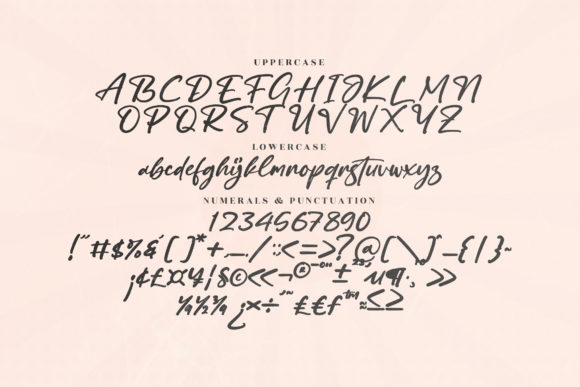 UPPERCASE
ABCDEFGHIJKLMN
OPQRSTUVWXYZ
LOWERCASE
abcdefghijklmnopqrstuvwxyz
NUMERALS & PUNCTUATION
1234567890
!"#$%&'()*+,-./:;<=>?@[\]^_{|}~
¡¢£¤¥¦§©«¬®¯°±²³´µ¶·¸»
¼½¾¿×÷ ₤£ƒ™≈≤≥